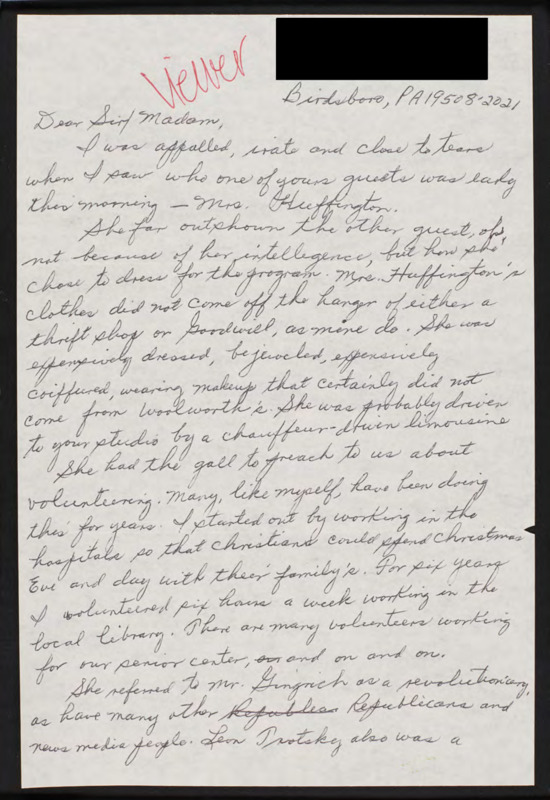 Viewer
Birdsboro, PA 19508-2021
Dear Sir/Madam,
I was appalled, irate and close to tears
when I saw who one of yours guests was early
this morning — Mrs. Huffington.
She far outshown the other guest,
not because of her intellegence, but how she
chose to dress for the program. Mrs. Huffington's
clothes did not come off the hanger of either a
thrift shop or Goodwill, as mine do. She was
expensively dressed, bejeweled, expensively
coiffured, wearing makeup that certainly did not
come from Woolworth's. She was probably driven
to your studio by a chauffeur-driven limousine
She had the gall to preach to us about
volunteering. Many, like myself, have been doing
this for years. I started out by working in the
hospitals so that Christians could spend Christmas
Eve and day with their family's. For six years
I volunteered six hours a week working in the
local library. There are many volunteers working
for our senior center, and on and on.
She referred to Mr. Gingrich as a revolutionary,
as have many other Republicans and
news media people. Leon Trotsky also was a